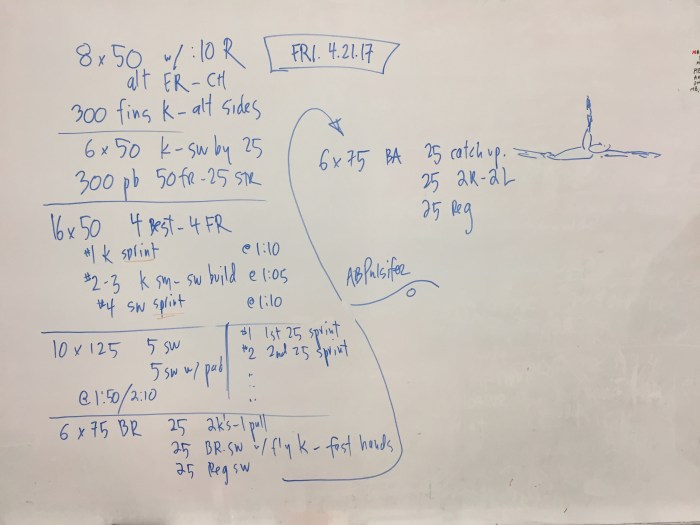 FRI. 4.21.17
8 x 50 w/ :10 R
alt FR - CH
300 fins K - alt sides
6 x 50 K - sw by 25
300 pb 50 fr - 25 STR
16 x 50 4 Best - 4 FR
#1 K sprint @ 1:10
#2-3 K sm - sw build @ 1:05
#4 sw sprint @ 1:10
10 x 125 5 sw
5 sw w/ pad
@ 1:50/2:10
#1 1st 25 sprint
#2 2nd 25 sprint
6 x 75 BR 25 2k's - 1 pull
25 BR. sw w/ fly K - fast hands
25 Reg sw
6 x 75 BA 25 catch up.
25 2R - 2L
25 Reg
ABPulsifer